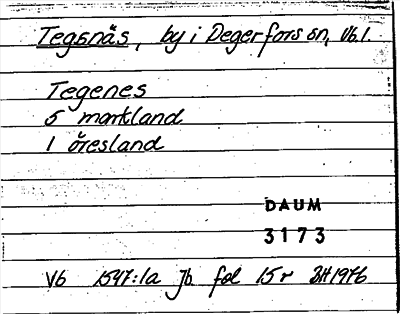 Tegsnäs, by i Degerfors sn, Vb.l.
Tegenes
5 markland
1 öresland
DAUM
3173
Vb 1547:1a Jb fol 15r BH1976